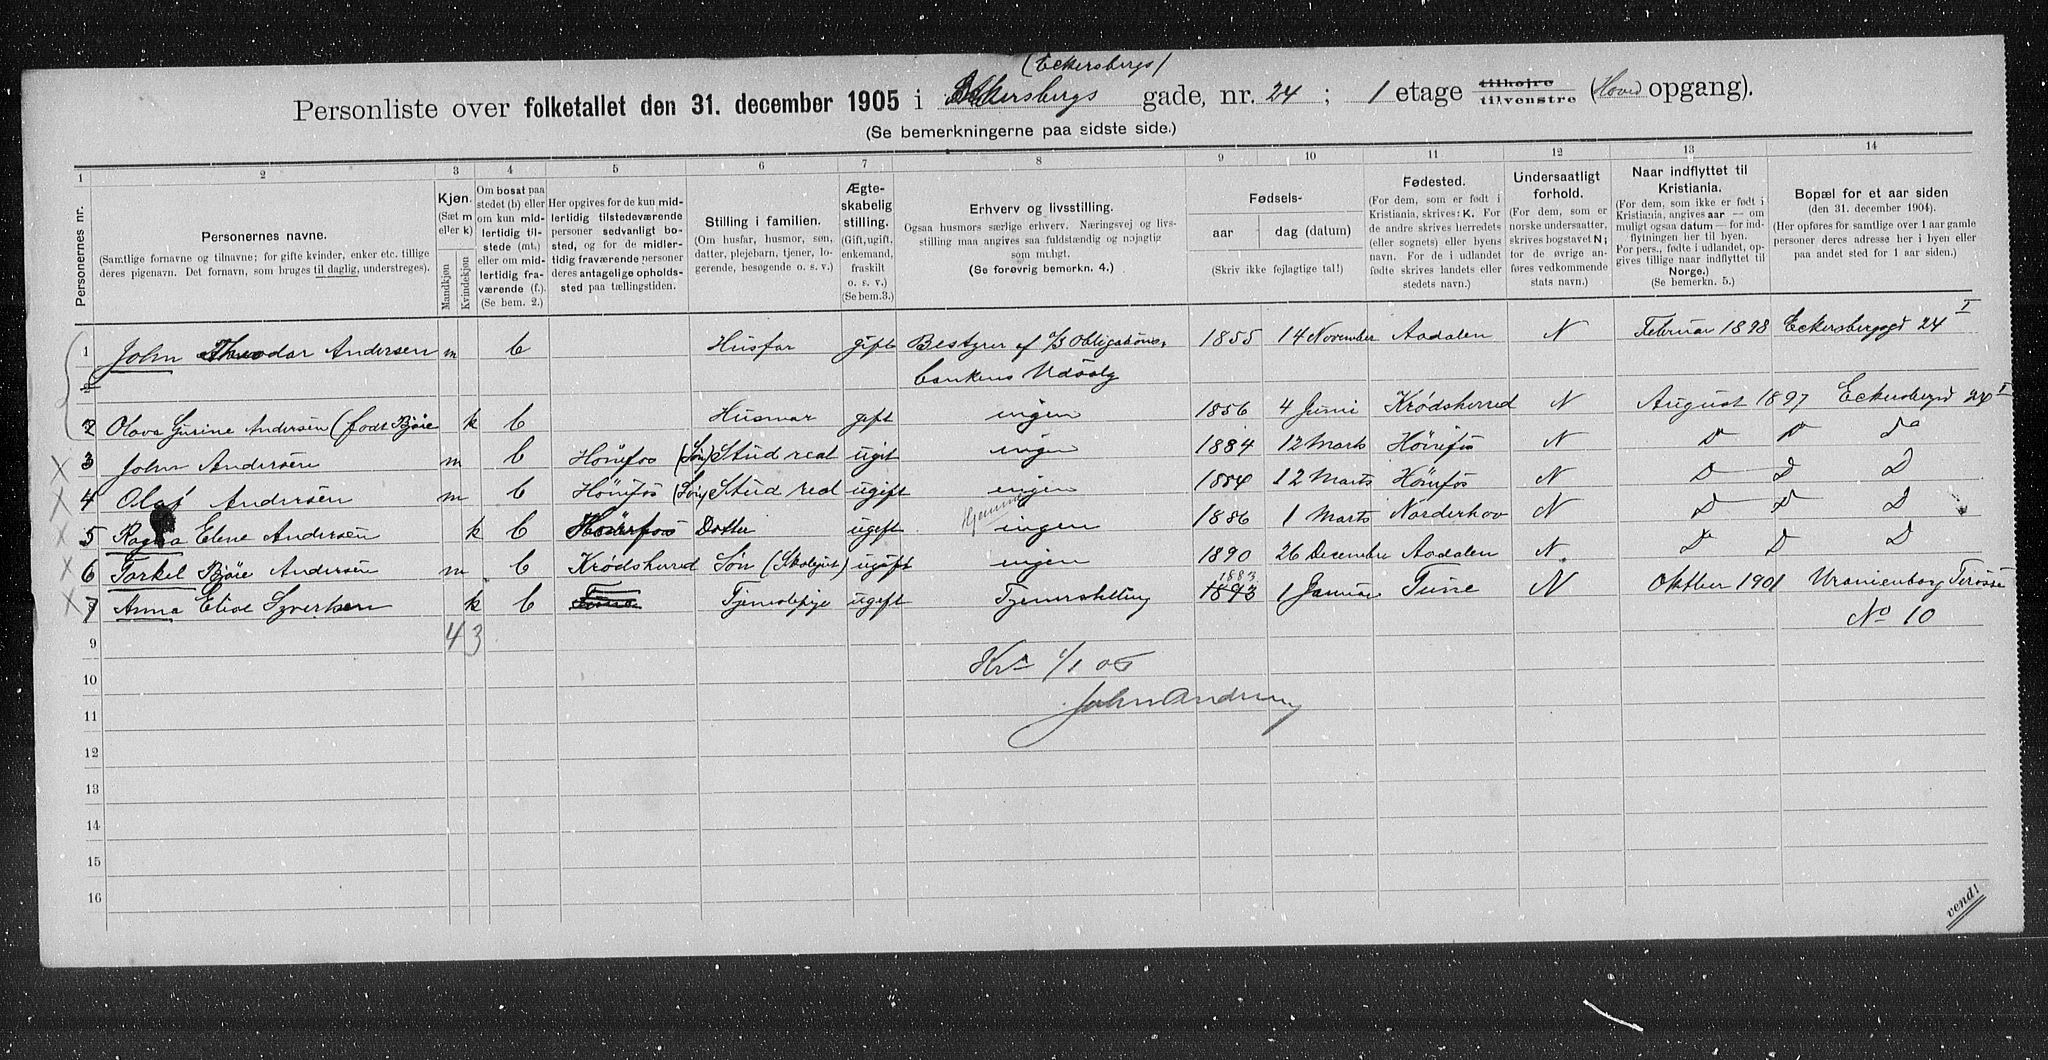 (Eckersbergs)
Personliste over folketallet den 31. december 1905 i Eckersbergs gade, nr. 24; 1 etage tilhøjre tilvenstre (Hoved opgang).
(Se bemerkningerne paa sidste side.)
1 2 3 4 5 6 7 8 9 10 11 12 13 14
Personernes nr.
Personernes navne.
(Samtlige fornavne og tilnavne; for gifte kvinder, enker etc. tillige deres pigenavn. Det fornavn, som bruges til daglig, understreges).
Kjøn.
(Sæt m eller k)
Mandkjøn
Kvindekjøn
Om bosat paa stedet (b) eller om kun midlertidig tilstede (mt.) eller om midlertidig fraværende (f.). (Se bem. 2.)
Her opgives for de kun midlertidig tilstedeværende personer sedvanligt bosted, og for de midlertidig fraværende personer deres antagelige opholdssted paa tællingstiden.
Stilling i familien.
(Om husfar, husmor, søn, datter, plejebarn, tjener, logerende, besøgende o. s. v.)
Ægteskabelig stilling.
(Gift, ugift, enkemand, fraskilt o. s. v.) (Se bem. 3.)
Erhverv og livsstilling.
Ogsaa husmors særlige erhverv. Næringsvej og livsstilling maa angives saa fuldstændig og nøjagtig som muligt.
(Se forøvrig bemerkn. 4.)
Fødsels-
aar
dag (datum)
(Skriv ikke fejlagtige tal!)
Fødested.
(For dem, som er født i Kristiania, skrives: K. For de andre skrives herredets (eller sognets) eller byens navn. For de i udlandet fødte skrives landets eller stedets navn.)
Undersaatligt forhold.
(For dem, som er norske undersaatter, skrives bogstavet N; for de øvrige anføres vedkommende stats navn.)
Naar indflyttet til Kristiania.
(For dem, som ikke er født i Kristiania, angives aar — om muligt ogsaa datum — for indflytningen her til byen. For pers., fødte i udlandet, opgives tillige naar indflyttet til Norge.)
(Se bemerkn. 5.)
Bopæl for et aar siden
(den 31. december 1904).
(Her opføres for samtlige over 1 aar gamle personer deres adresse her i byen eller paa andet sted for 1 aar siden.)
1 John Theodor Andersen m b Husfar gift Bestyrer af A/S Obligations- 1855 14 November Aadalen N Februar 1898 Eckersbergsgd 24 I
bankens Udsalg
2 Olava Gurine Andersen (født Bjøre k b Husmor gift ingen 1856 4 Juni Krødsherred N August 1897 Eckersbergsgd 24 I
3 John Andersen m b Hønefos (Søn) Stud real ugift ingen 1884 12 Marts Hønefos N D D Do
4 Olaf Andersen m b Hønefos (Søn) Stud real ugift ingen 1884 12 Marts Hønefos N D D D
5 Ragna Elene Andersen k b Hønefos Datter ugift Hjemme ingen 1886 1 Marts Norderhov N D D D
6 Torkel Bjøre Andersen m b Krødsherred Søn (Skolegut) ugift ingen 1890 26 December Aadalen N. D D D
7 Anna Elise Syvertsen k b Tune Tjenestepige ugift Tjenerstilling 1893 1883 1 Januar Tune N Oktober 1901 Uranienborg Terasse
No 10
4 3
9
Kra 1/1 06
10
John Andersen
11
12
13
14
15
16
vend!